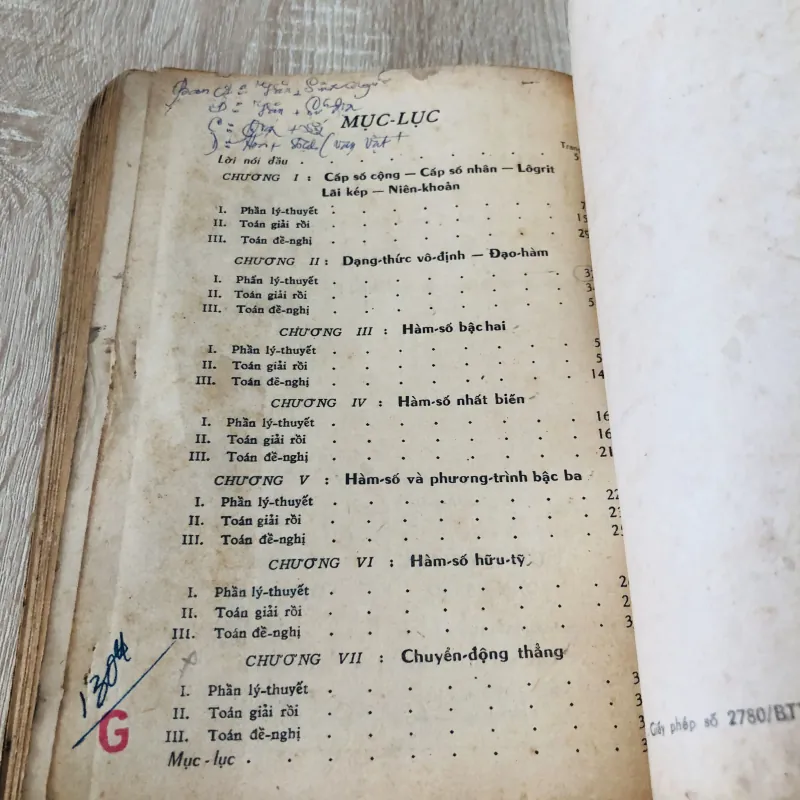 MỤC-LỤC
Trang
Lời nói đầu . . . . . . . . 5
CHƯƠNG I : Cấp số cộng — Cấp số nhân — Lôgrit
Lãi kép — Niên-khoản
I. Phần lý-thuyết . . . . . . . .
II. Toán giải rồi . . . . . . . . 15
III. Toán đề-nghị . . . . . . . . 29
CHƯƠNG II : Dạng-thức vô-định — Đạo-hàm
I. Phần lý-thuyết . . . . . . . . 3
II. Toán giải rồi . . . . . . . . 3
III. Toán đề-nghị . . . . . . . . 5
CHƯƠNG III : Hàm-số bậc hai
I. Phần lý-thuyết . . . . . . . . 5
II. Toán giải rồi . . . . . . . . 5
III. Toán đề-nghị . . . . . . . . 14
CHƯƠNG IV : Hàm-số nhất biến
I. Phần lý-thuyết . . . . . . . . 16
II. Toán giải rồi . . . . . . . . 16
III. Toán đề-nghị . . . . . . . . 21
CHƯƠNG V : Hàm-số và phương-trình bậc ba
I. Phần lý-thuyết . . . . . . . . 22
II. Toán giải rồi . . . . . . . . 23
III. Toán đề-nghị . . . . . . . . 25
CHƯƠNG VI : Hàm-số hữu-tỷ
I. Phần lý-thuyết . . . . . . . . 2
II. Toán giải rồi . . . . . . . . 2
III. Toán đề-nghị . . . . . . . . 3
CHƯƠNG VII : Chuyển-động thẳng
I. Phần lý-thuyết . . . . . . . . 3
II. Toán giải rồi . . . . . . . . 3
III. Toán đề-nghị . . . . . . . . 3
Mục-lục . . . . . . . . 3
G
Giấy phép số 2780/BTT